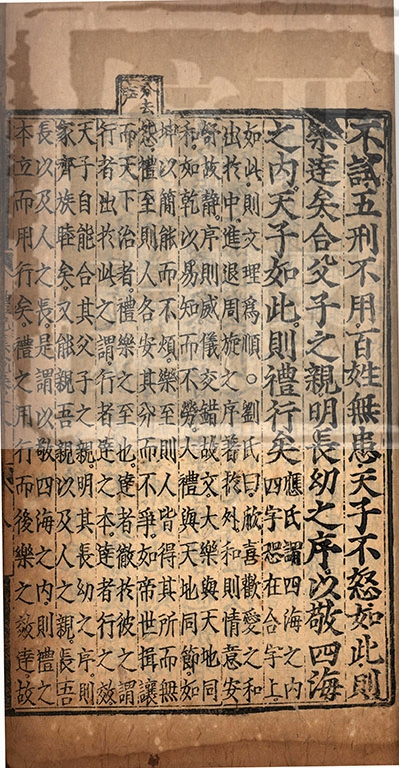 不試五刑不用百姓無患天子不怒如此則
樂達矣合父子之親明長幼之序以敬四海
之內天子如此則禮行矣應氏謂四海之內
四字恐在合字上
如此則文理爲順○劉氏曰欣喜歡愛之和
出於中進退周旋之序著於外和則情意安
舒故静序則威儀交錯故文大樂與天地同
和如乾以易知而不勞大禮與天地同節如
坤以簡能而不煩樂至則人皆得其所而無
怨禮至則人各安其分而不爭如帝世揖讓
而天下治者禮樂之至也達者徹於彼之謂
行者出於此之謂行者達之本達者行之效
天子自能合其父子之親明其長幼之序則
家齊族睦矣又能親吾親以及人之親長吾
長以及人之長是謂以敬四海之內則禮之
本立而用行矣禮之用行而後樂之效達故
分去